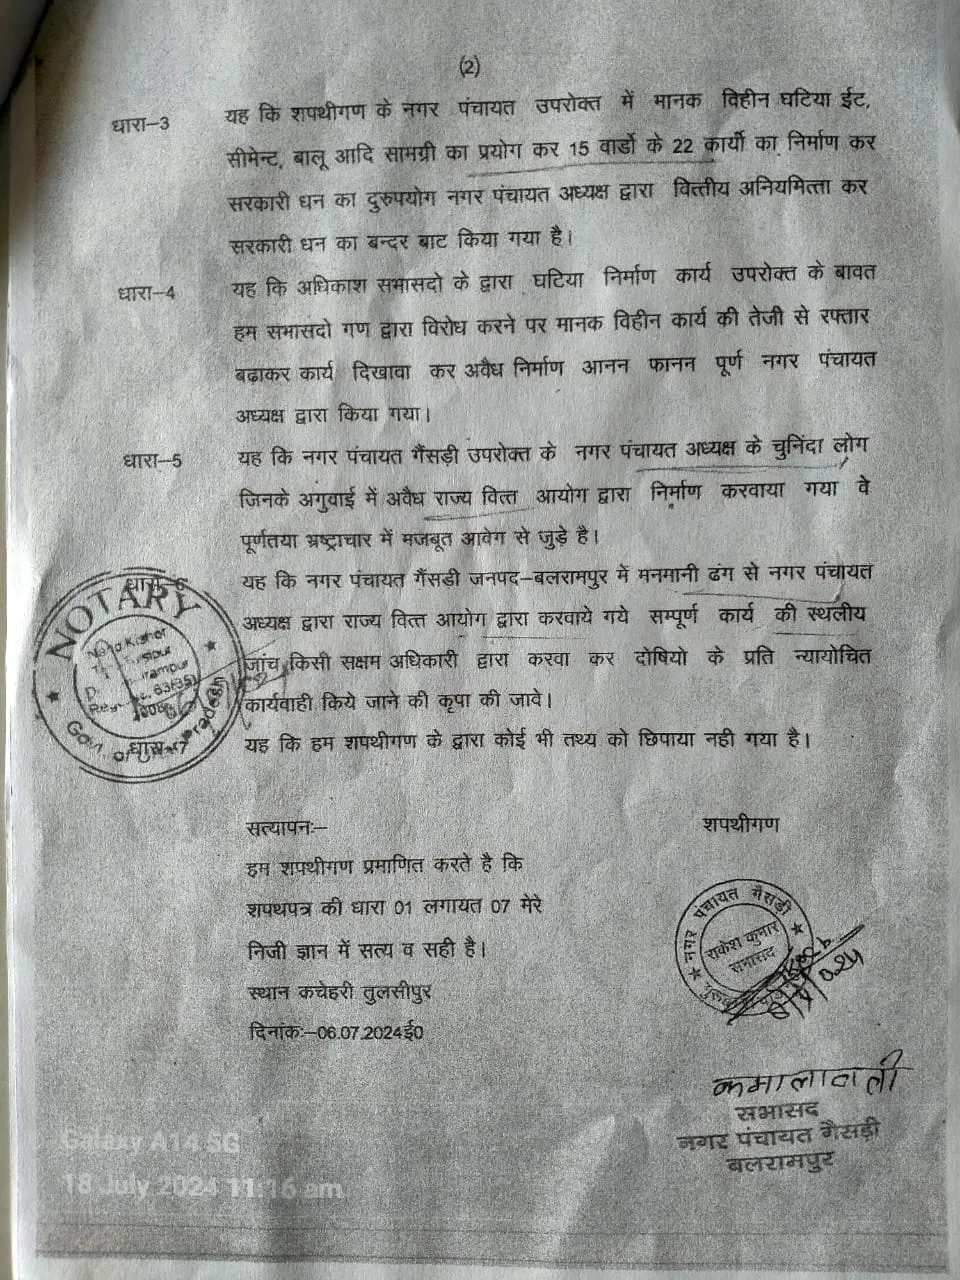 (2)
धारा-3 यह कि शपथीगण के नगर पंचायत उपरोक्त में मानक विहीन घटिया ईट,
सीमेन्ट, बालू आदि सामग्री का प्रयोग कर 15 वार्डो के 22 कार्यो का निर्माण कर
सरकारी धन का दुरुपयोग नगर पंचायत अध्यक्ष द्वारा वित्तीय अनियमित्ता कर
सरकारी धन का बन्दर बाट किया गया है।
धारा-4 यह कि अधिकाश सभासदो के द्वारा घटिया निर्माण कार्य उपरोक्त के बावत
हम सभासदो गण द्वारा विरोध करने पर मानक विहीन कार्य की तेजी से रफ्तार
बढ़ाकर कार्य दिखावा कर अवैध निर्माण आनन फानन पूर्ण नगर पंचायत
अध्यक्ष द्वारा किया गया।
धारा-5 यह कि नगर पंचायत गैंसड़ी उपरोक्त के नगर पंचायत अध्यक्ष के चुनिंदा लोग
जिनके अगुवाई में अवैध राज्य वित्त आयोग द्वारा निर्माण करवाया गया वे
पूर्णतया भ्रष्ट्राचार में मजबूत आवेग से जुड़े है।
धारा-6 यह कि नगर पंचायत गैंसड़ी जनपद-बलरामपुर में मनमानी ढंग से नगर पंचायत
अध्यक्ष द्वारा राज्य वित्त आयोग द्वारा करवाये गये सम्पूर्ण कार्य की स्थलीय
जांच किसी सक्षम अधिकारी द्वारा करवा कर दोषियो के प्रति न्यायोचित
कार्यवाही किये जाने की कृपा की जावे।
धारा-7 यह कि हम शपथीगण के द्वारा कोई भी तथ्य को छिपाया नही गया है।
NOTARY
सत्यापनः-
शपथीगण
हम शपथीगण प्रमाणित करते है कि
शपथपत्र की धारा 01 लगायत 07 मेरे
निजी ज्ञान में सत्य व सही है।
स्थान कचेहरी तुलसीपुर
दिनांकः-06.07.2024ई0
नगर पंचायत गैसड़ी
राकेश कुमार
सभासद
कमालावती
सभासद
नगर पंचायत गैसड़ी
बलरामपुर
Galaxy A14 5G
18 July 2024 11:16 am